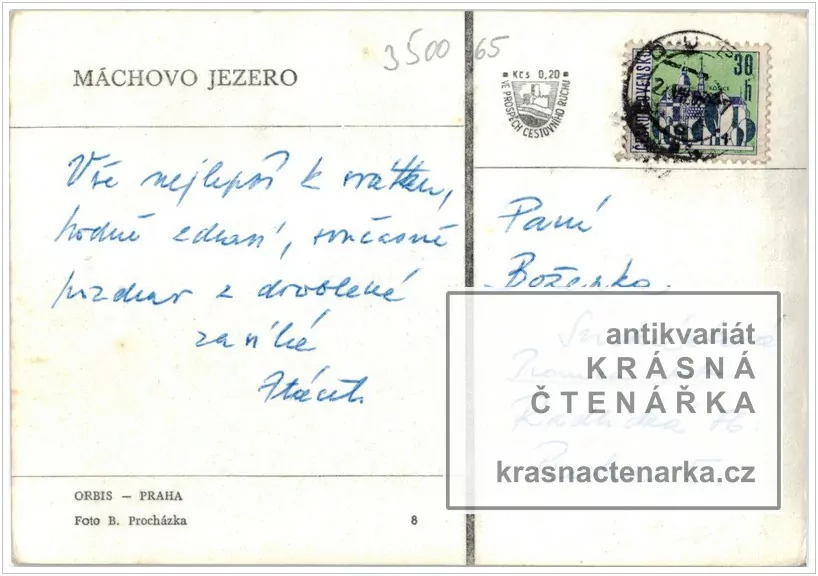 MÁCHOVO JEZERO
3500 65
Kčs 0,20
VE PROSPĚCH CESTOVNÍHO RUCHU
30 h
ČESKOSLOVENSKO
Vše nejlepší k svátku,
hodně zdraví, současně
pozdrav z dovolené
zasílá
Paní
Boženka
antikvariát
KRÁSNÁ
ČTENÁŘKA
krasnactenarka.cz
ORBIS – PRAHA
Foto B. Procházka
8